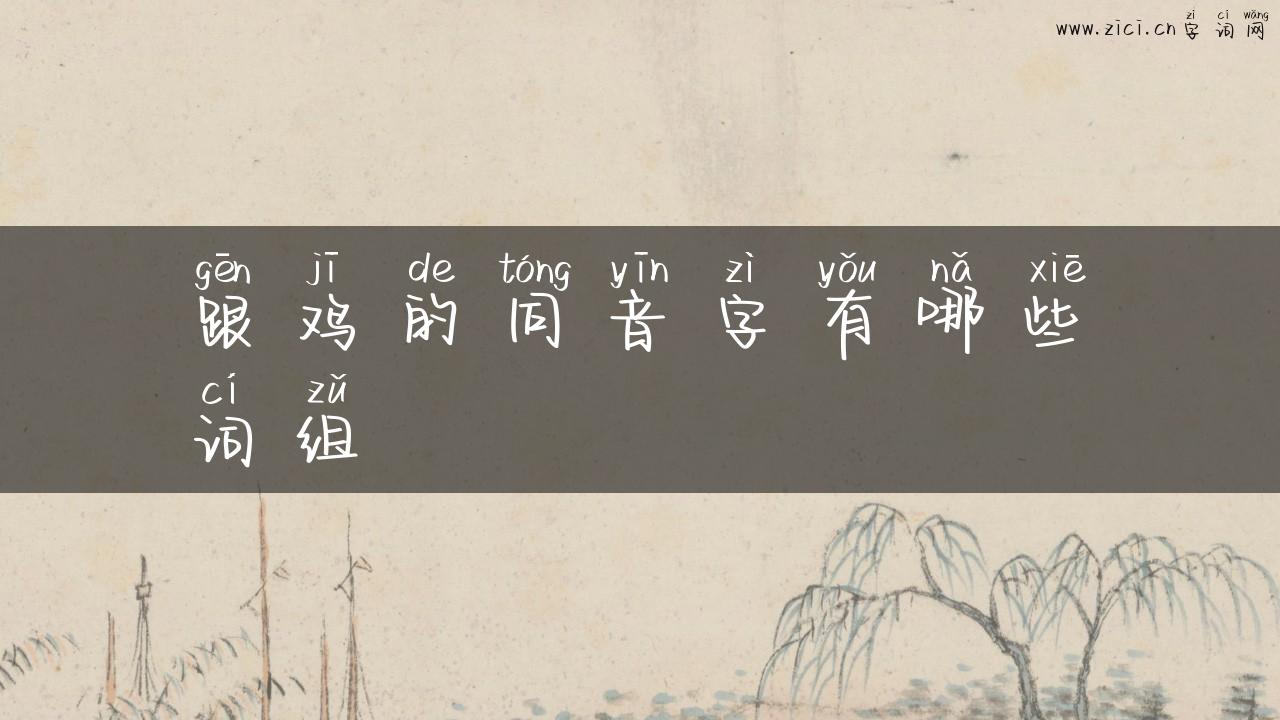 zì cí wǎng
www.zici.cn字词网
gēn jī de tóng yīn zì yǒu nǎ xiē
跟鸡的同音字有哪些
cí zǔ
词组